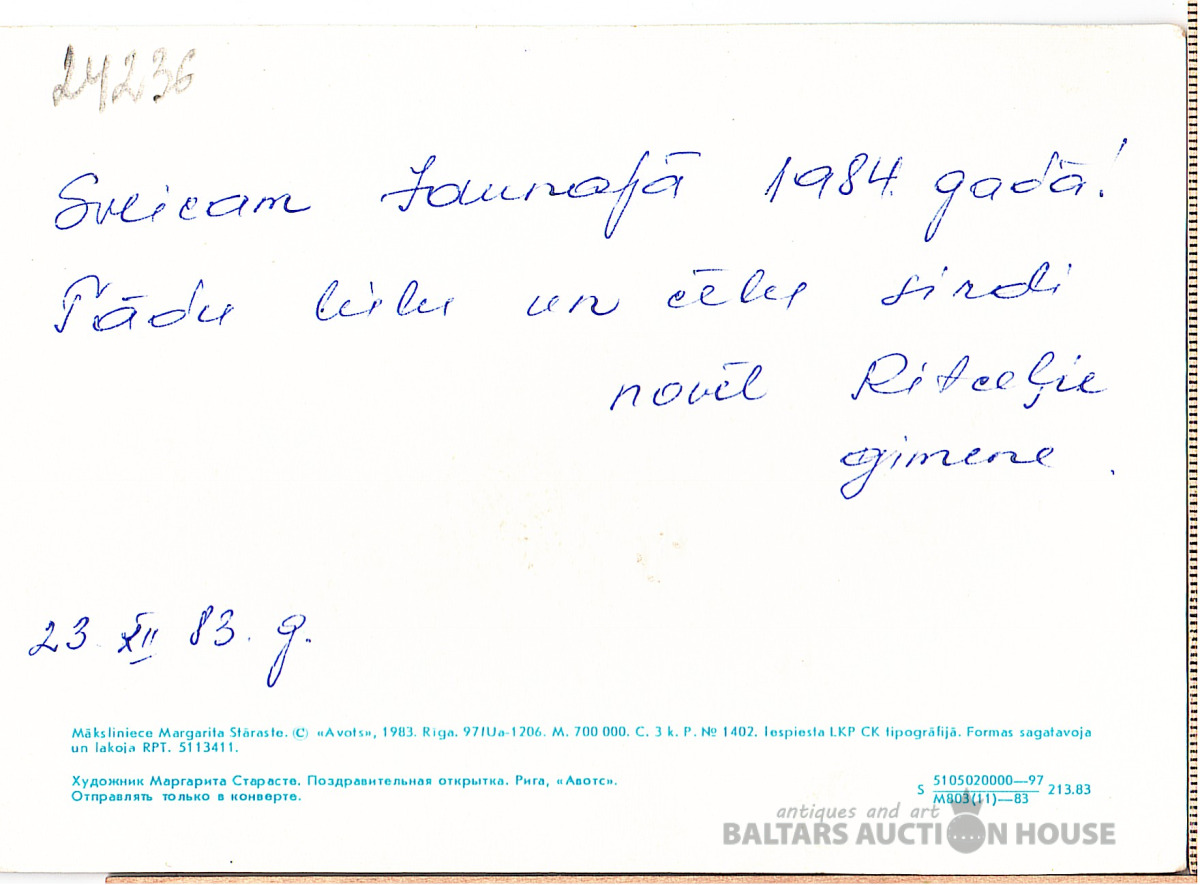 24236
Sveicam Jaunajā 1984. gadā!
Tādu lielu un cēlu sirdi
novēl
ģimene.
23. XII 83. g.
Māksliniece Margarita Stāraste. © «Avots», 1983. Rīga. 971Ua-1206. M. 700 000. C. 3 k. P. № 1402. Iespiesta LKP CK tipogrāfijā. Formas sagatavoja
un lakoja RPT. 5113411.
Художник Маргарита Старасте. Поздравительная открытка. Рига, «Авотс».
Отправлять только в конверте.
S 5105020000—97 213.83
M803(11)—83
antiques and art
BALTARS AUCTION HOUSE